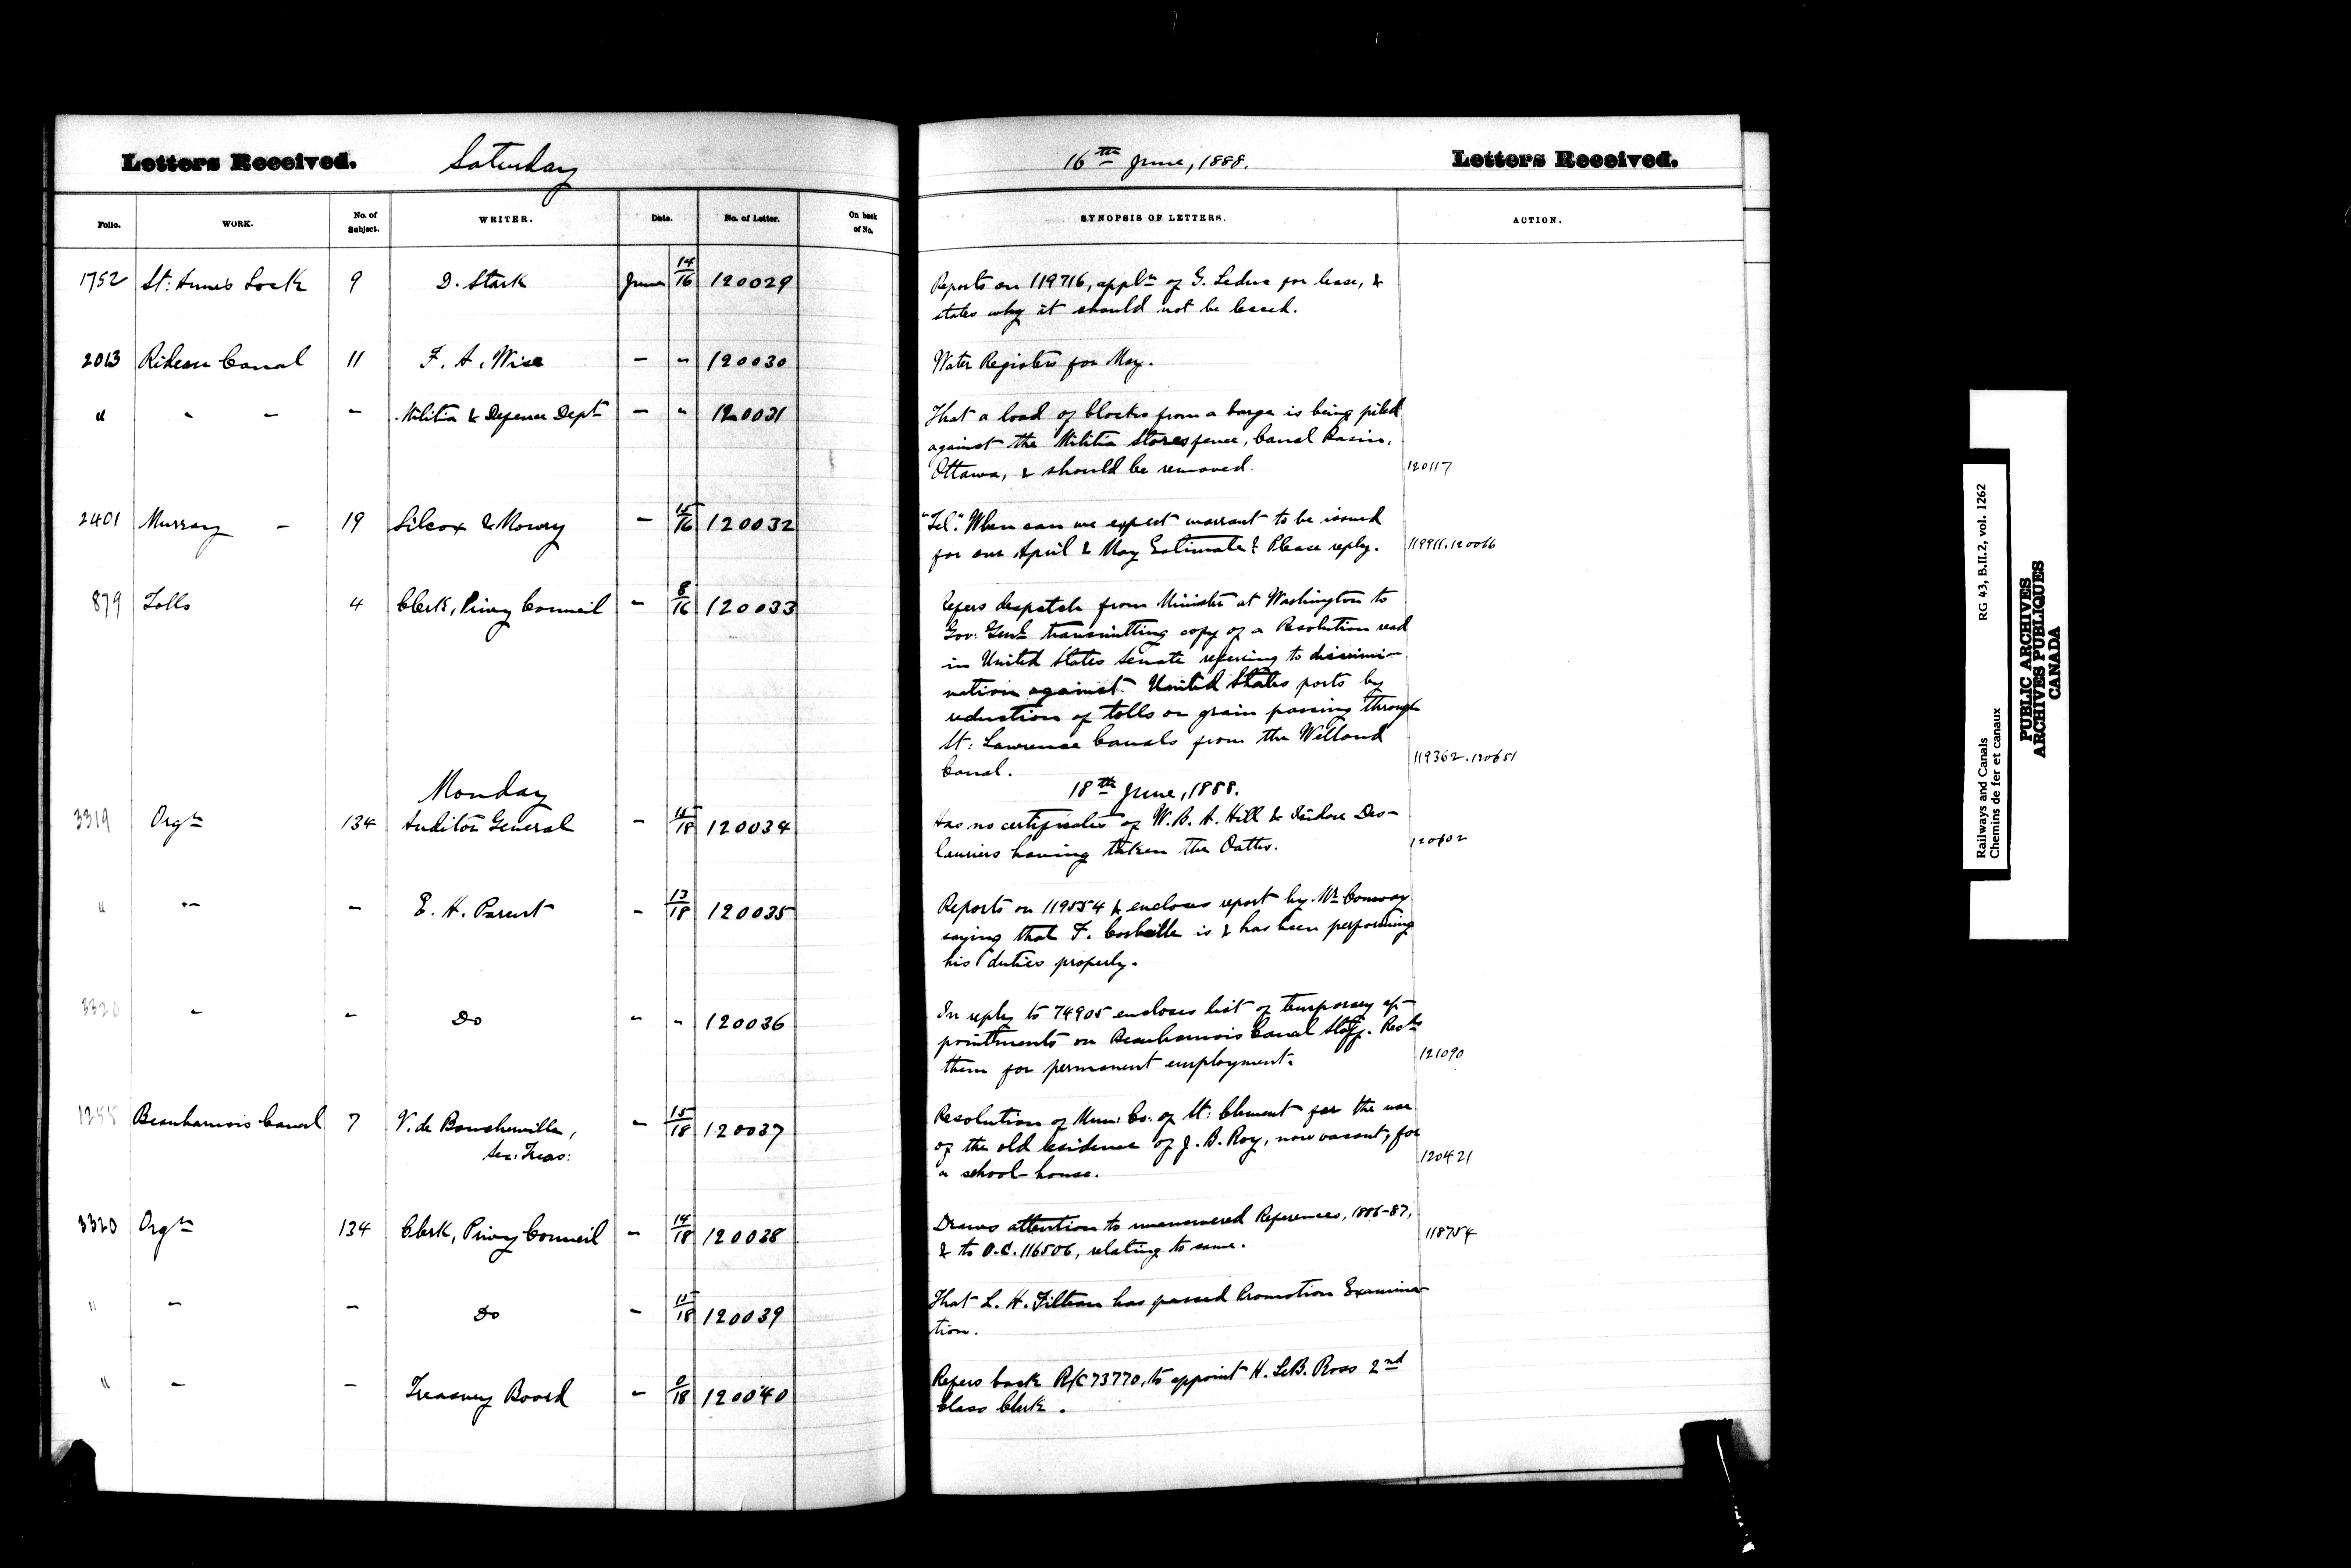 Letters Received. Saturday 16th June, 1888. Letters Received.
Folio. WORK. No. of Subject. WRITER. Date. No. of Letter. On back of No. SYNOPSIS OF LETTERS. ACTION.
1752 St: Anne's Lock 9 D. Stark June 14/16 120029 Reports on 119716, appln of G. Leduc for lease, &
states why it should not be leased.
2013 Rideau Canal 11 F. A. Wise - " 120030 Water Registers for May.
" " - - Militia & Defence Dept - " 120031 That a load of blocks from a barge is being piled
against the Militia Stores fence, Canal Basin,
Ottawa, & should be removed. 120117
2401 Murray - 19 Silcox & Mowry - 15/16 120032 "Tel". When can we expect warrant to be issued
for our April & May Estimate? Please reply. 119911. 120066
879 Tolls 4 Clerk, Privy Council - 8/16 120033 Refers despatch from Minister at Washington to
Gov: Genl. transmitting copy of a Resolution read
in United States Senate referring to discrimi-
nation against United States ports by
reduction of tolls on grain passing through
St: Lawrence Canals from the Welland
Canal. 119362. 120651
Monday 18th June, 1888.
3319 Orgn 134 Auditor General - 15/18 120034 Has no certificates of W. B. A. Hill & Isidore Des-
lauriers having taken the Oaths.
" " - E. H. Parent - 13/18 120035 Reports on 119554 & encloses report by Mr Conway
saying that F. is & has been performing
his duties properly.
3320 " " Do " " 120036 In reply to 74905 encloses list of temporary ap-
pointments on Beauharnois Canal Staff. Recds
them for permanent employment. 121090
1255 Beauharnois Canal 7 V. de Boucherville, - 15/18 120037 Resolution of Mun: Co: of St: Clement for the use
Sec: Treas: of the old residence of J. B. Roy, now vacant, for
a school-house. 120421
3320 Orgn 134 Clerk, Privy Council - 14/18 120038 Draws attention to unanswered References, 1886-87,
& to O.C. 116506, relating to same. 118754
" - - Do - 15/18 120039 That L. H. Filteau has passed Promotion Examina-
tion.
" - - Treasury Board - /18 120040 Refers back R/C 73770, to appoint H. LeB. Ross 2nd
Class Clerk.
Railways and Canals RG 43, B.II.2, vol. 1262
Chemins de fer et canaux
PUBLIC ARCHIVES
ARCHIVES PUBLIQUES
CANADA